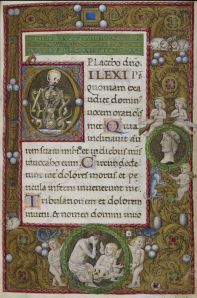 Placebo dño
ILEXI
quoniam exa
udiet domi
uocem orationis
mee Quia
inclinauit au
rem suam mihi et in diebus meis
inuocabo eum Circumdede
runt me dolores mortis et pe
ricula inferni inuenerunt me
Tribulationem et dolorem
inueni et nomen domini inuo